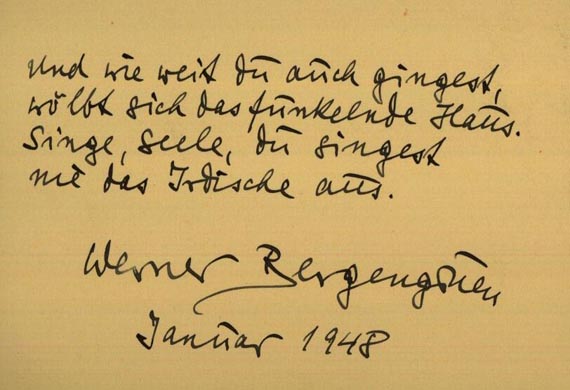 Und wie weit du auch gingest,
wölbt sich das funkelnde Haus.
Singe, Seele, du singest
nie das Irdische aus.
Werner Bergengruen
Januar 1948